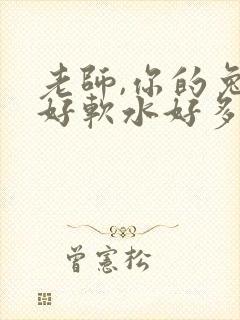 老師,你的兔
好軟水好多
曾憲松